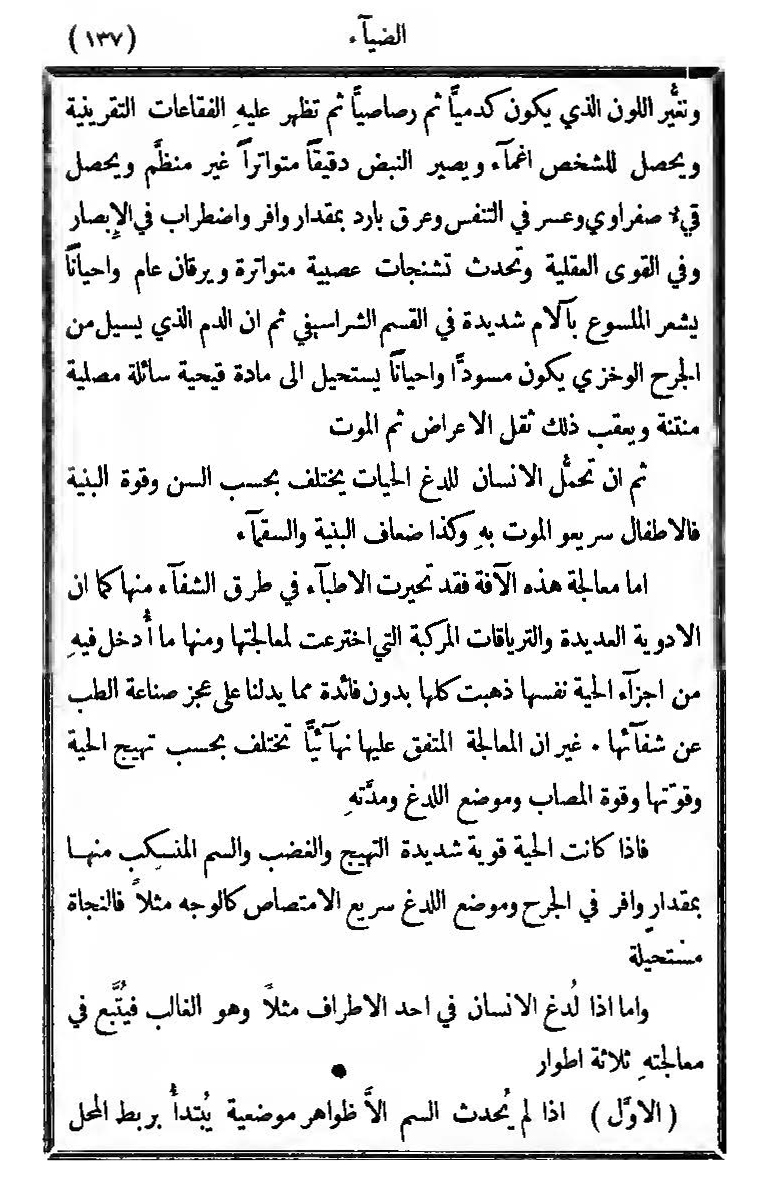 الضيآء (١٣٧)
وتغيُّر اللون الذي يكون كدميًّا ثم رصاصيًّا ثم تظهر عليهِ الفقاعات التقرينية
ويحصل للشخص اغمآء ويصير النبض دقيقاً متواتراً غير منظَّم ويحصل
قيء صفراوي وعسر في التنفس وعرق بارد بمقدار وافر واضطراب في الإبصار
وفي القوى العقلية وتحدث تشنجات عصبية متواترة ويرقان عام واحياناً
يشعر الملسوع بآلام شديدة في القسم الشراسيفي ثم ان الدم الذي يسيل من
الجرح الوخزي يكون مسودًّا واحياناً يستحيل الى مادة قيحية سائلة مصلية
منتنة ويعقب ذلك ثقل الاعراض ثم الموت
ثم ان تحمُّل الانسان للدغ الحيات يختلف بحسب السن وقوة البنية
فالاطفال سريعو الموت بهِ وكذا ضعاف البنية والسقمآء
اما معالجة هذه الآفة فقد تحيرت الاطبآء في طرق الشفآء منها كما ان
الادوية العديدة والترياقات المركبة التي اخترعت لمعالجتها ومنها ما أُدخل فيهِ
من اجزآء الحية نفسها ذهبت كلها بدون فائدة مما يدلنا على عجز صناعة الطب
عن شفآئها ٠ غير ان المعالجة المتفق عليها نهآئيًّا تختلف بحسب تهيج الحية
وقوّتها وقوة المصاب وموضع اللدغ ومدَّتهِ
فاذا كانت الحية قوية شديدة التهيج والغضب والسم المنسكب منها
بمقدارٍ وافر في الجرح وموضع اللدغ سريع الامتصاص كالوجه مثلاً فالنجاة
مستحيلة
واما اذا لُدغ الانسان في احد الاطراف مثلاً وهو الغالب فيُتَّبع في
معالجتهِ ثلاثة اطوار
(الاوَّل) اذا لم يُحدث السم الاَّ ظواهر موضعية يُبتدأُ بربط المحل